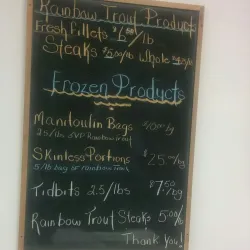 Rainbow Trout Products
Fresh Fillets $6.50/lb
Steaks $5.00/lb Whole $4.25/lb
Frozen Products
Manitoulin Bags $10.00/bg
2.5 lbs SVP Rainbow Trout
Skinless Portions $25.00/bg
5/lb bag of rainbow trout
Tidbits 2.5/lbs $7.50/bg
Rainbow Trout Steaks 5.00/lb
Thank you!